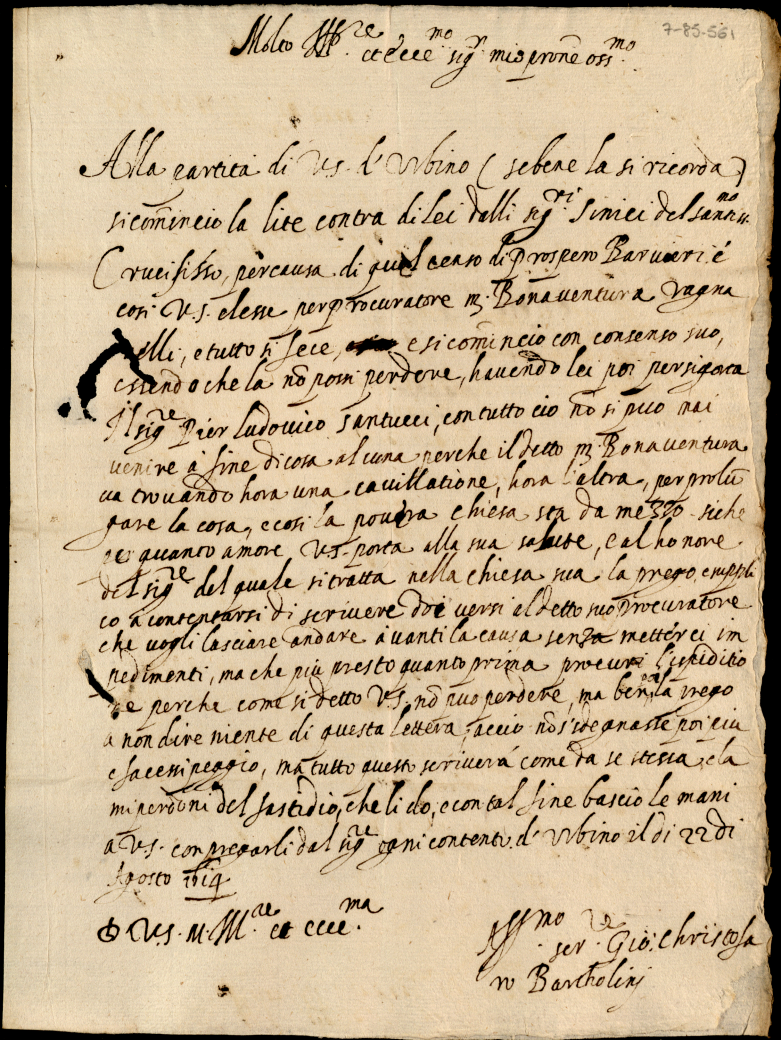 7-85-561
Molto Ill.re et ecc.mo sig.r mio prone oss.mo
Alla partita di V.S. d'Urbino (sebene la si ricorda)
si comincio la lite contra di Lei dalli sig.ri Sinici del santiss.mo
Crucifisso, per causa di quel censo di Prospero Barvieri é
cosi V.S. elesse per procuratore m. Bonaventura Vagna
elli, e tutto si fece, e si comincio con consenso suo,
essendo che la nō possi perdere, havendo lei poi per sigorta
Il sig.re Pier Ludovico Santucci, con tutto cio nō si puo mai
venire à fine di cosa alcuna perche il detto m. Bonaventura
va trovando hora una cavillatione, hora l'altra, per prolū
gare la cosa, e cosi la povera chiesa sta da mezzo siche
per quanto amore V.S. porta alla sua salute, e al honore
del sig.re del quale si tratta nella chiesa sua la prego e suppli
co à contentarsi di scrivere doi versi al detto suo procuratore
che vogli lasciare andare avanti la causa senza metterci im
pedimenti, ma che piu presto quanto prima procuri l'espeditio
ne perche come si detto V.S. nō puo perdere, ma ben la prego
a non dire niente di questa lettera, accio nō s'sdegnasse poi piu
e facessi peggio, ma tutto questo scriverá come da se stessa, e la
mi perdoni del fastidio, che li do, e con tal fine bascio le mani
à V.S. con pregarli dal sig.re ogni contento d'Urbino il di 22 di
Agosto 1614
D V.S. M. Ill.re et ecce.ma
Aff.mo ser.re Gio: Christofa
ro Bartholinj